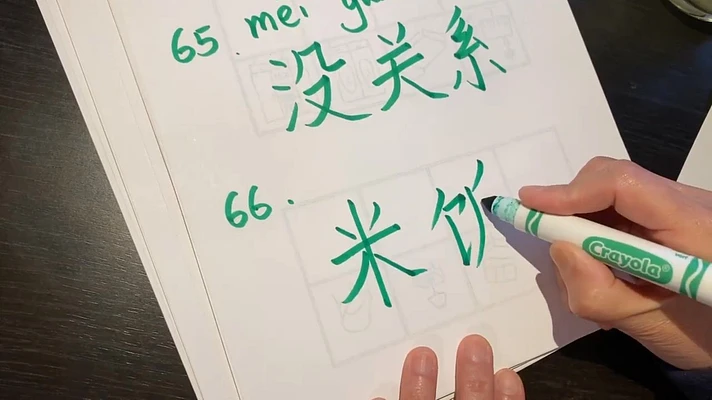 65. mei
没关系
66.
米
Crayola